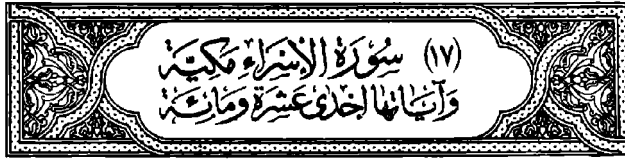 (١٧) سُورَةُ الإِسْرَاءِ مَكِيَّة
وَآيَاتُهَا إِحْدَى عَشْرَة وَمَائِة